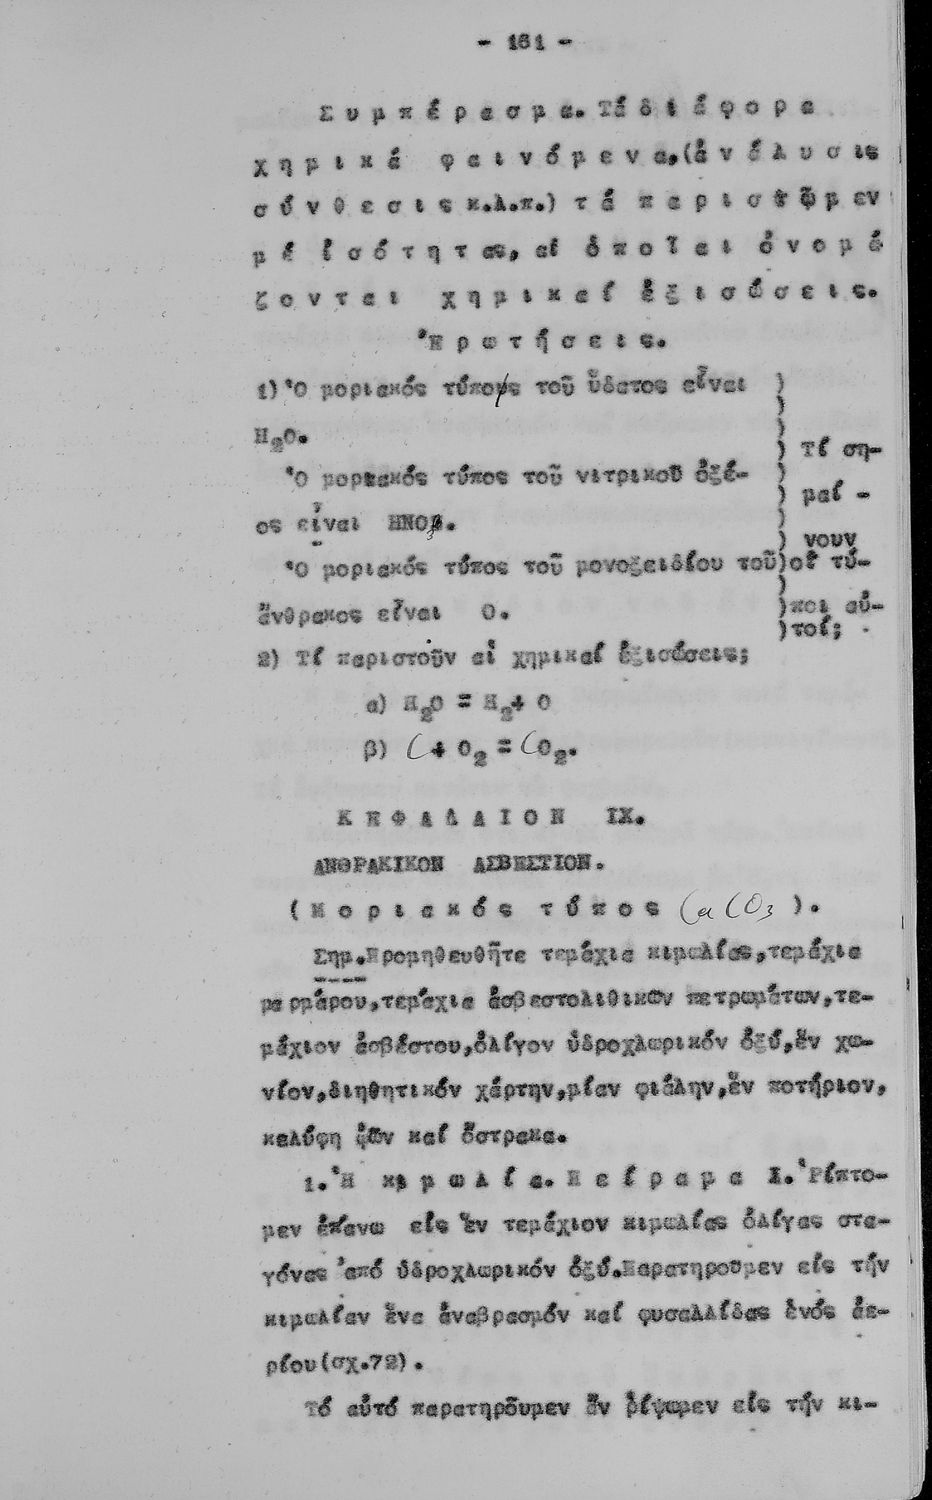 - 161 -
Συμπέρασμα. Τά διάφορα
χημικά φαινόμενα,(ἀνάλυσις
σύνθεσις κ.λ.π.) τά παριστῶμεν
μέ ἰσότητας, αἱ ὁποῖαι ὀνομά
ζονται χημικαί ἐξισώσεις.
Ἐρωτήσεις.
1) Ὁ μοριακός τύπος τοῦ ὕδατος εἶναι )
H₂O.
) Τί ση-
Ὁ μοριακός τύπος τοῦ νιτρικοῦ ὀξέ-
) μαί -
ος εἶναι HNO₃.
) νουν
Ὁ μοριακός τύπος τοῦ μονοξειδίου τοῦ)οἱ τύ-
ἄνθρακος εἶναι O.
)ποι αὐ-
)τοί;
2) Τί παριστοῦν αἱ χημικαί ἐξισώσεις;
α) H₂O = H₂+ O
β) C + O₂ = CO₂.
ΚΕΦΑΛΑΙΟΝ IX.
ΑΝΘΡΑΚΙΚΟΝ ΑΣΒΕΣΤΙΟΝ.
(Μοριακός τύπος CaCO₃ ).
Σημ.Προμηθευθῆτε τεμάχια κιμωλίας,τεμάχια
μαρμάρου,τεμάχια ἀσβεστολιθικῶν πετρωμάτων,τε-
μάχιον ἀσβέστου,ὀλίγον ὑδροχλωρικόν ὀξύ,ἕν χω-
νίον,διηθητικόν χάρτην,μίαν φιάλην,ἕν ποτήριον,
κελύφη ᾠῶν καί ὄστρακα.
1.Ἡ κιμωλία. Πείραμα I. Ῥίπτο-
μεν ἐπάνω εἰς ἕν τεμάχιον κιμωλίας ὀλίγας στα-
γόνας ἀπό ὑδροχλωρικόν ὀξύ.Παρατηροῦμεν εἰς τήν
κιμωλίαν ἕνα ἀναβρασμόν καί φυσαλλίδας ἑνός ἀε-
ρίου(σχ.72).
Τό αὐτό παρατηροῦμεν ἄν ῥίψωμεν εἰς τήν κι-